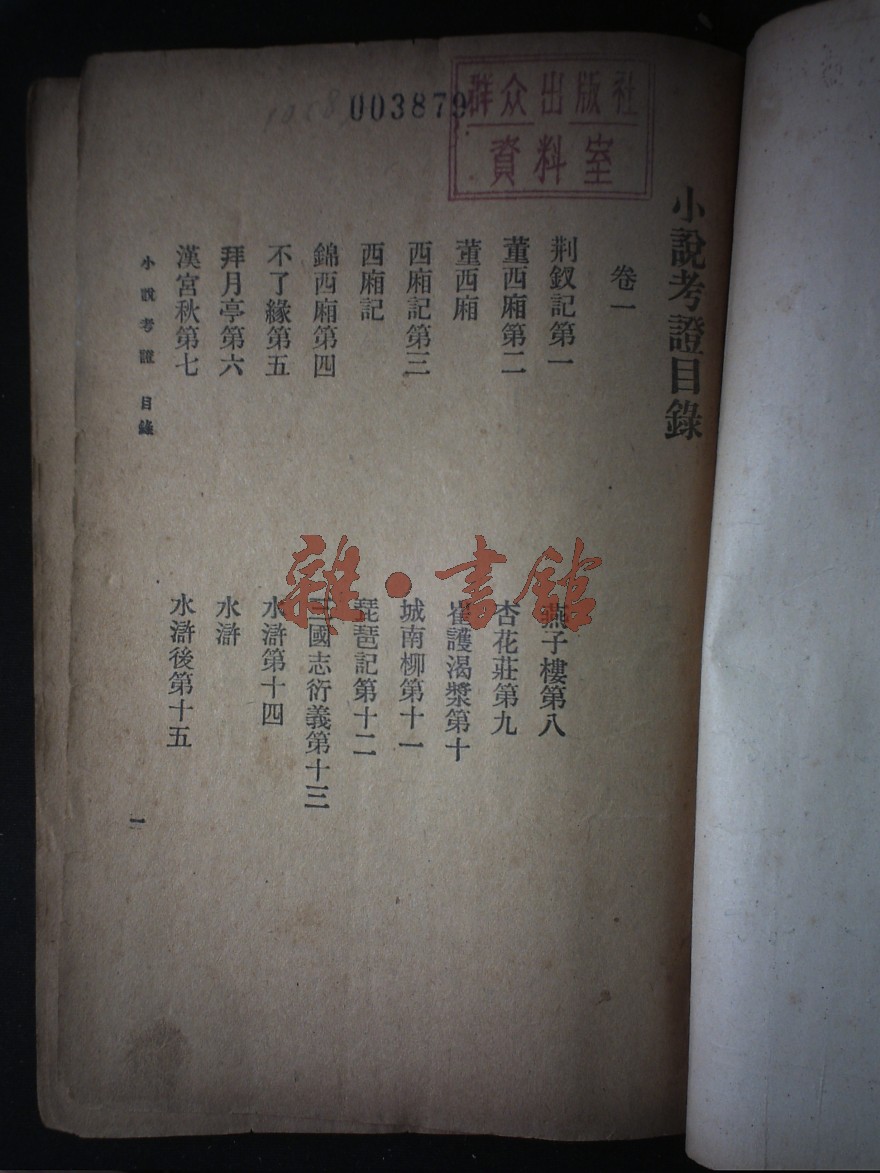 003879
群众出版社
資料室
小說考證目錄
卷一
荆釵記第一
董西廂第二
董西廂
西廂記第三
西廂記
錦西廂第四
不了緣第五
拜月亭第六
漢宮秋第七
燕子樓第八
杏花莊第九
崔護渴漿第十
城南柳第十一
琵琶記第十二
三國志衍義第十三
水滸第十四
水滸
水滸後第十五
小說考證 目錄
雜·書館